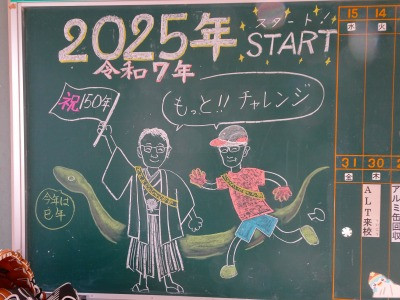 2025年
スタート!
START
令和7年
祝150年
もっと!! チャレンジ
今年は
巳年
15
水
14
31
金
30
木
ALT来校
アルミ缶回収